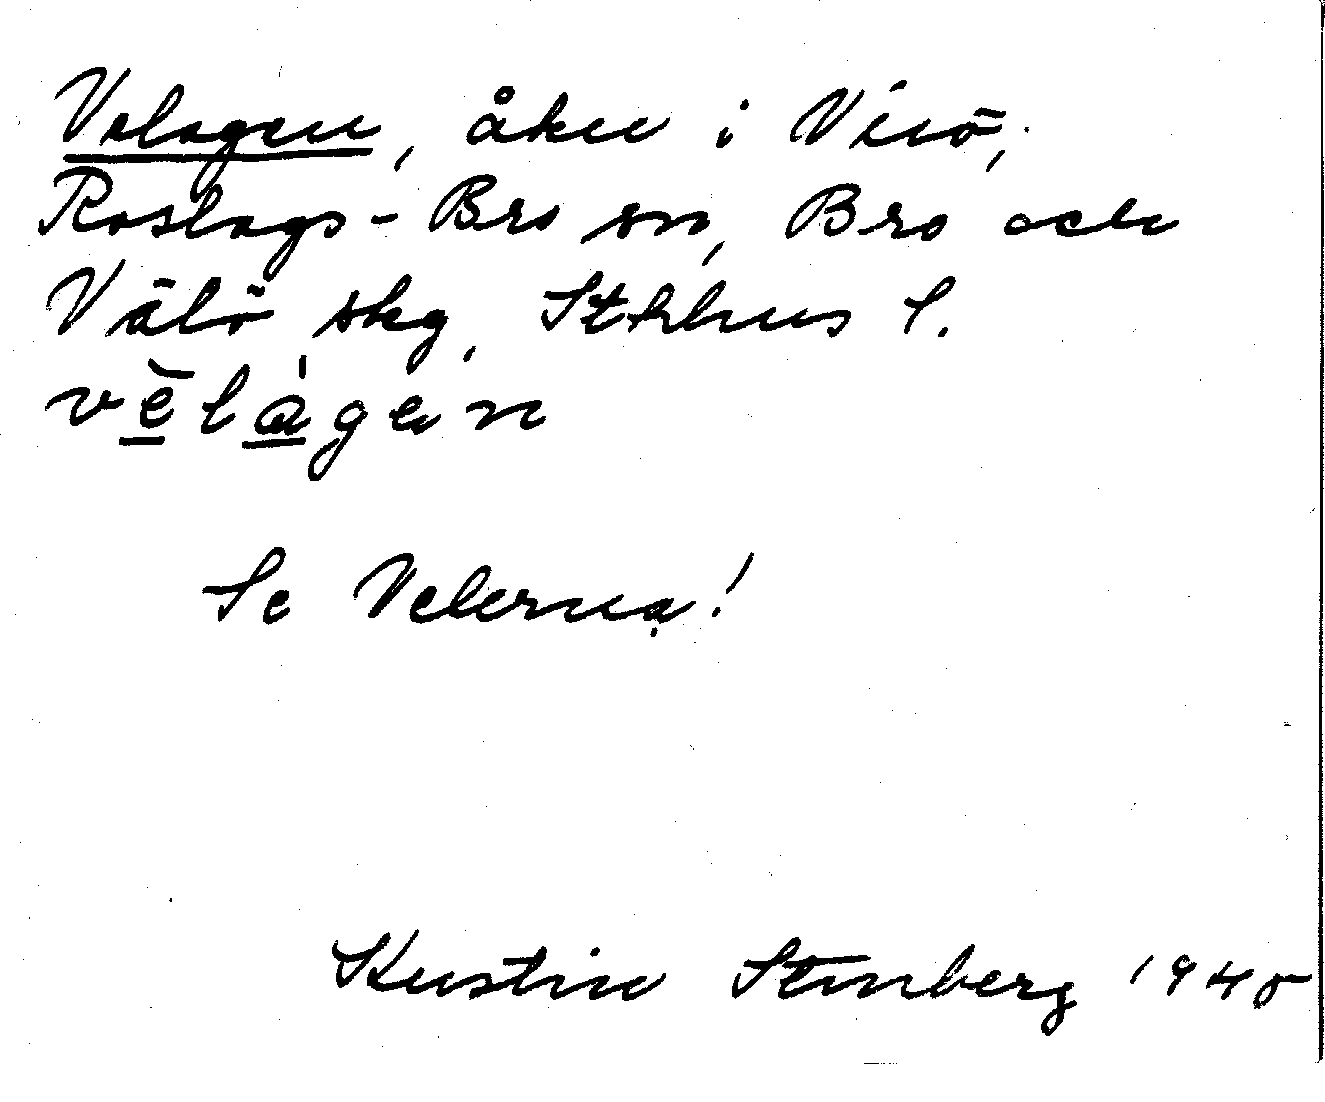 Velagen, åker i Virö,
Roslags-Bro sn, Bro och
Vätö skg, Sthlms l.
vèlàgen
Se Velerna!
Kustin Stenberg 1945